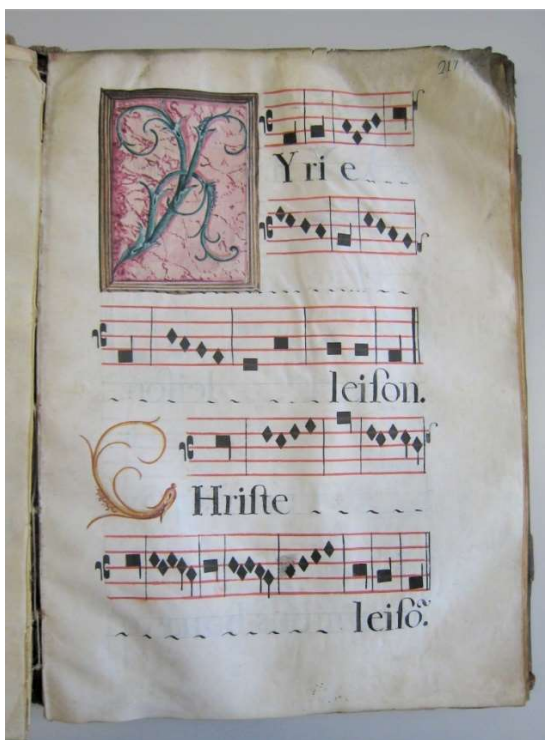 KY ri e
leiſon.
CHriſte
leiſõ.